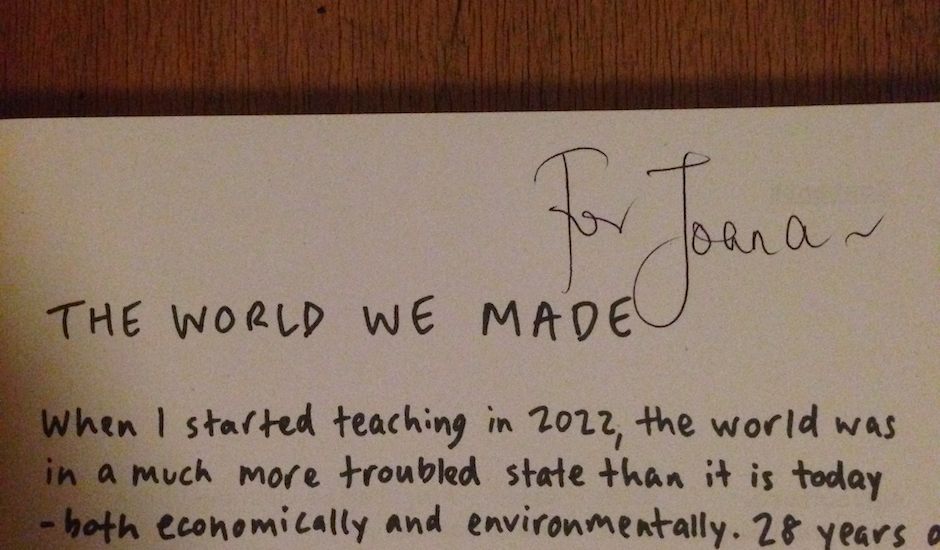 For Joana ~
THE WORLD WE MADE
When I started teaching in 2022, the world was
in a much more troubled state than it is today
- both economically and environmentally. 28 years